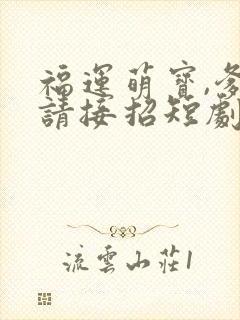 福運萌寶,爹
請接招短劇
流雲山莊1